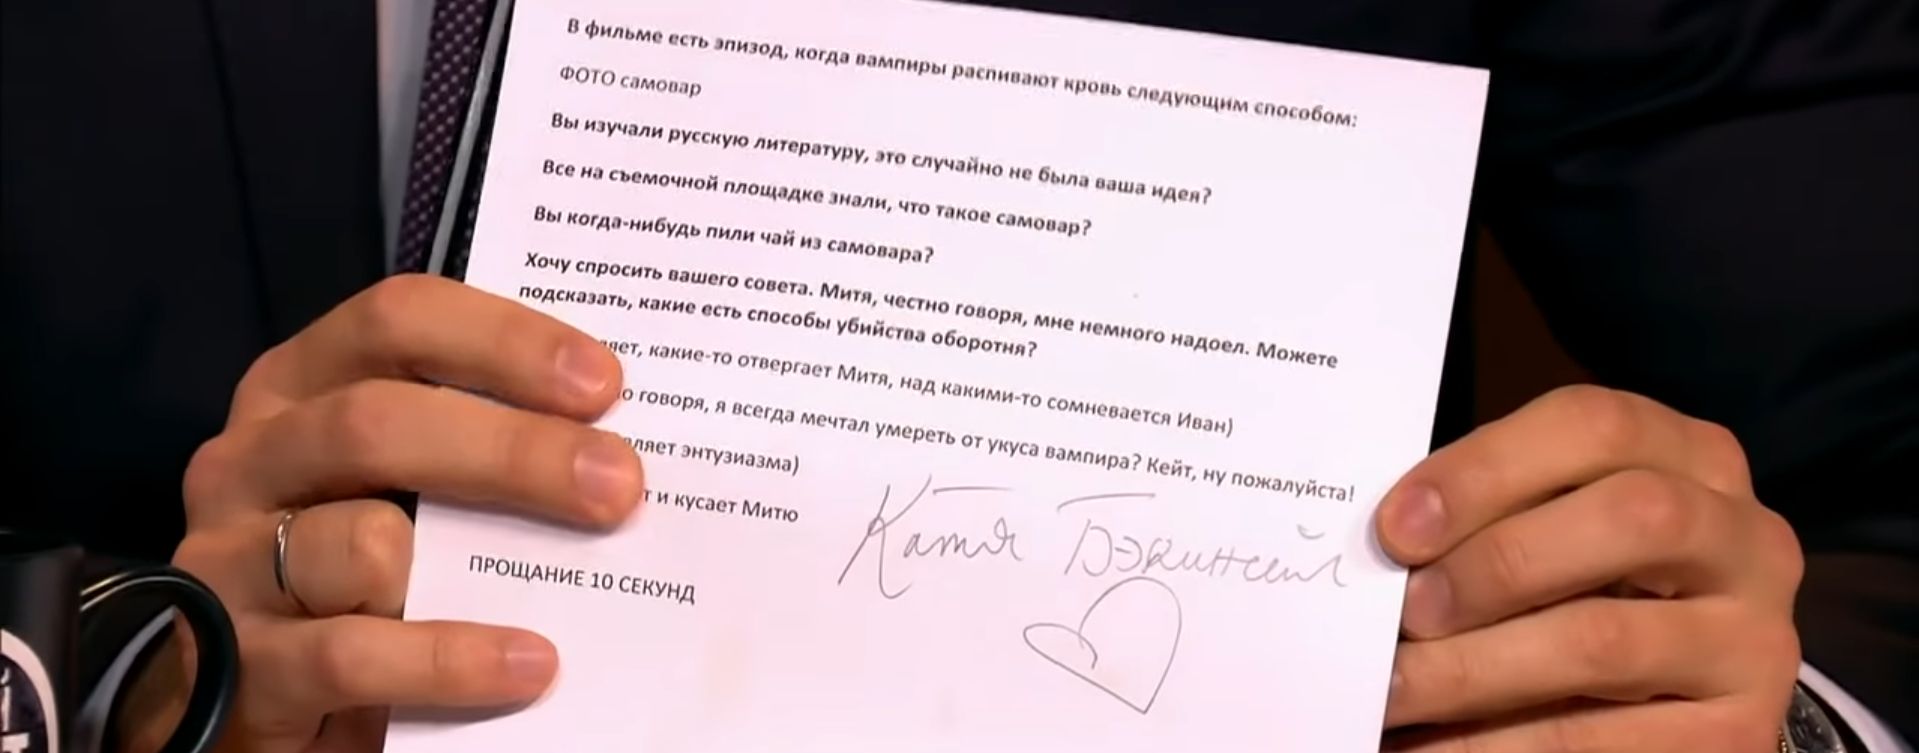 В фильме есть эпизод, когда вампиры распивают кровь следующим способом:
ФОТО самовар
Вы изучали русскую литературу, это случайно не была ваша идея?
Все на съемочной площадке знали, что такое самовар?
Вы когда-нибудь пили чай из самовара?
Хочу спросить вашего совета. Митя, честно говоря, мне немного надоел. Можете
подсказать, какие есть способы убийства оборотня?
какие-то отвергает Митя, над какими-то сомневается Иван)
говоря, я всегда мечтал умереть от укуса вампира? Кейт, ну пожалуйста!
энтузиазма)
и кусает Митю
Катя Бэкинсейл
ПРОЩАНИЕ 10 СЕКУНД